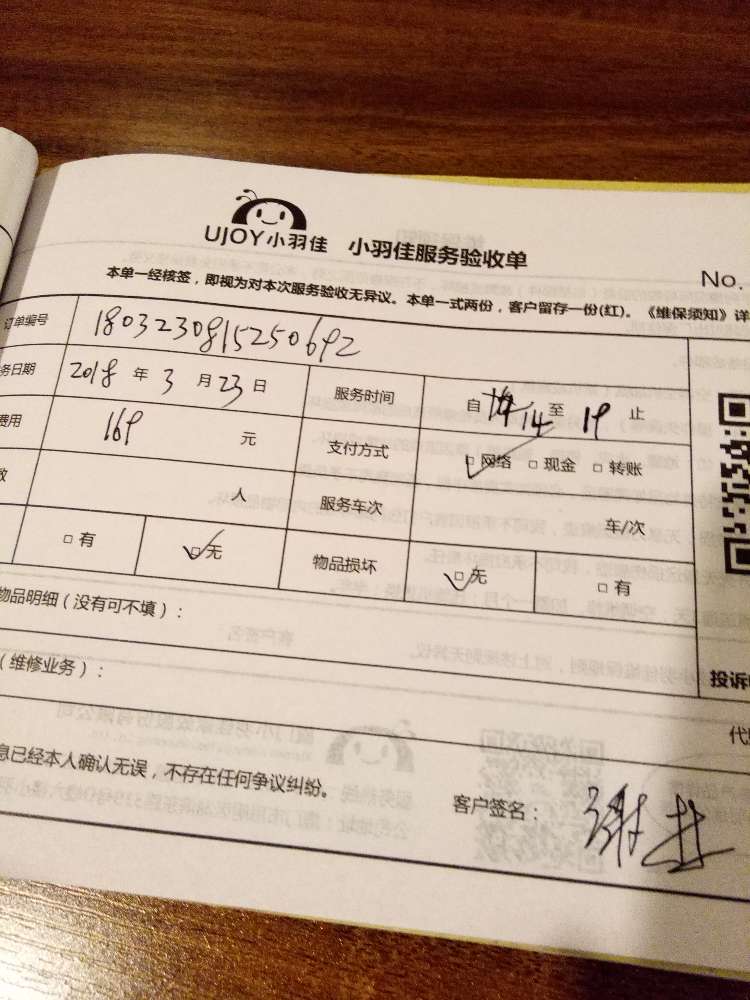 UJOY小羽佳 小羽佳服务验收单
No.
本单一经核签，即视为对本次服务验收无异议。本单一式两份，客户留存一份(红)。《维保须知》详
订单编号 1803230815250692
务日期 2018 年 3 月 23 日 服务时间 自 14 至 19 止
费用 169 元 支付方式 □网络 □现金 □转账
数 人 服务车次 车/次
□有 □无 物品损坏 □无 □有
物品明细（没有可不填）：
（维修业务）：
投诉
代
息已经本人确认无误，不存在任何争议纠纷。
客户签名： 谢